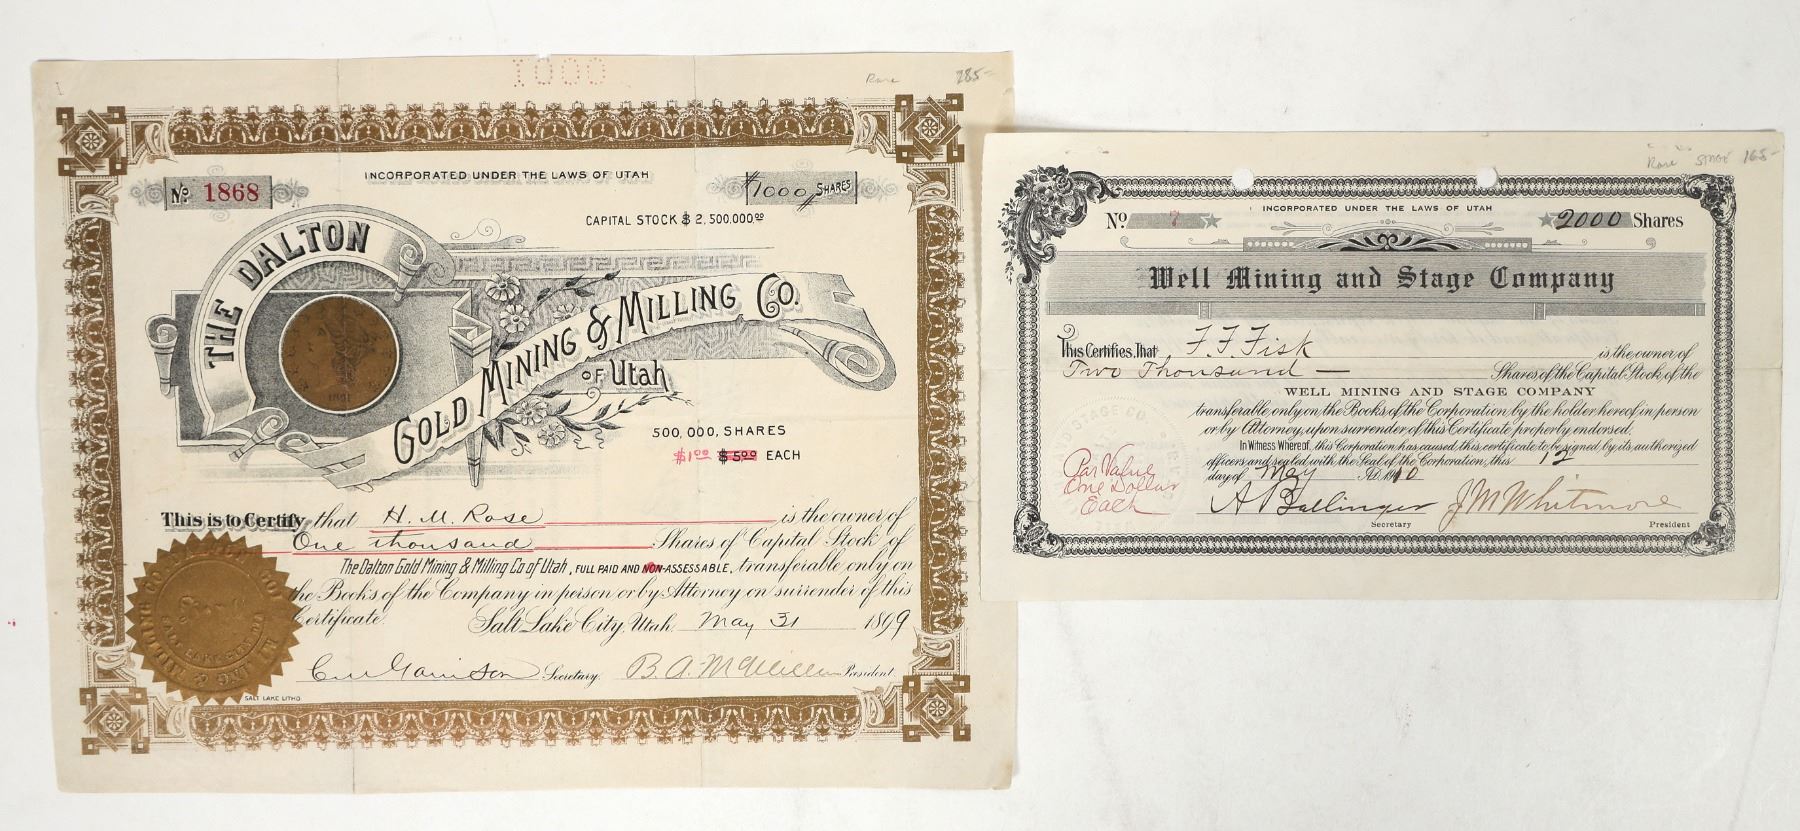 1000
Rare 285-
INCORPORATED UNDER THE LAWS OF UTAH
No. 1868
$1000 SHARES
CAPITAL STOCK $ 2,500.000.00
THE DALTON
GOLD MINING & MILLING CO.
OF Utah
1891
500,000, SHARES
$1.00 $5.00 EACH
This is to Certify that H. M. Rose is the owner of
One thousand Shares of Capital Stock of
The Dalton Gold Mining & Milling Co of Utah, FULL PAID AND NON-ASSESSABLE, transferable only on
the Books of the Company in person or by Attorney on surrender of this
Certificate. Salt Lake City, Utah, May 31 1899
Secretary. President
SALT LAKE LITHO.
Rare STAGE 165-
INCORPORATED UNDER THE LAWS OF UTAH
No. 7
2000 Shares
Well Mining and Stage Company
This Certifies, That F. F. Fisk is the owner of
Two Thousand — Shares of the Capital Stock of the
WELL MINING AND STAGE COMPANY
transferable only on the Books of the Corporation by the holder hereof in person
or by Attorney, upon surrender of this Certificate properly endorsed.
In Witness Whereof, this Corporation has caused this certificate to be signed by its authorized
officers and sealed with the Seal of the Corporation, this 12
day of May A.D. 1910
Par Value
One Dollar
Each
A Ballinger J M Whitmore
Secretary President